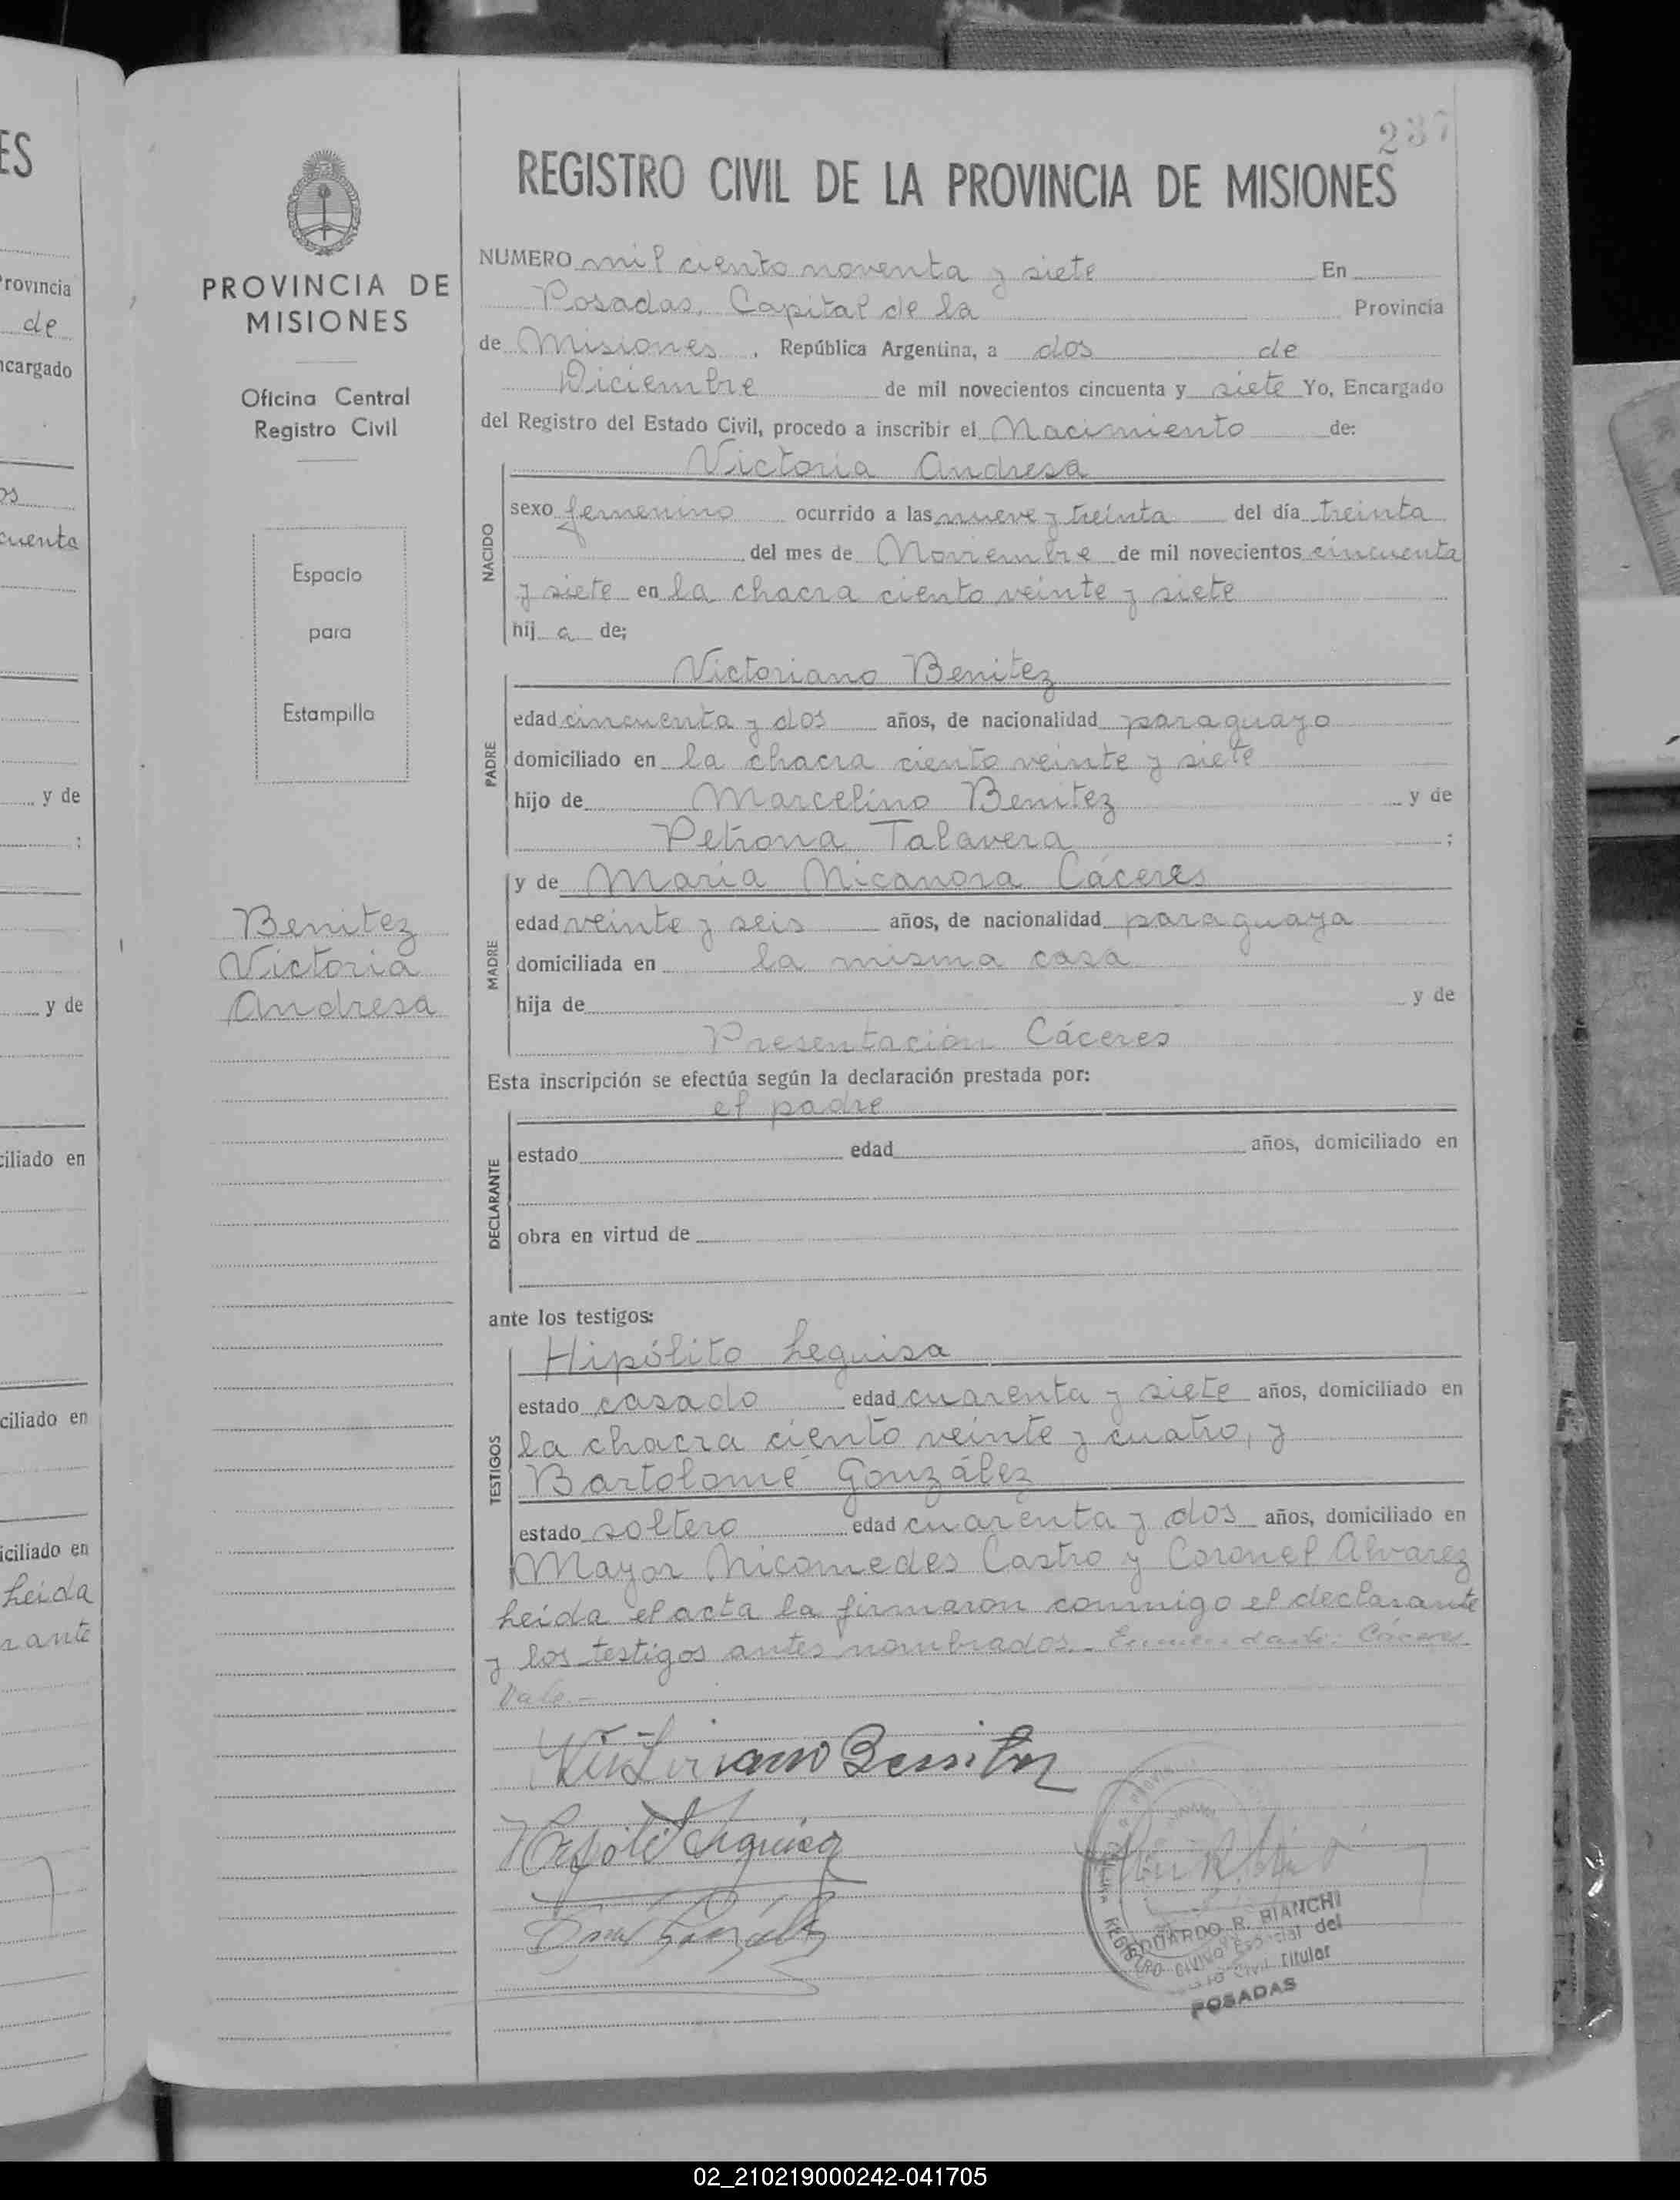 ES
rovincia
de
ncargado
os
cuenta
y de
:
y de
ciliado en
ciliado en
iciliado en
Leída
rante
PROVINCIA DE
MISIONES
Oficina Central
Registro Civil
Espacio
para
Estampilla
Benitez
Victoria
Andresa
237
REGISTRO CIVIL DE LA PROVINCIA DE MISIONES
NUMERO mil ciento noventa y siete En
Posadas, Capital de la Provincia
de Misiones, República Argentina, a dos de
Diciembre de mil novecientos cincuenta y siete Yo, Encargado
del Registro del Estado Civil, procedo a inscribir el Nacimiento de:
NACIDO
Victoria Andresa
sexo femenino ocurrido a las nueve y treinta del día treinta
del mes de Noviembre de mil novecientos cincuenta
y siete en la chacra ciento veinte y siete
hij a de;
PADRE
Victoriano Benitez
edad cincuenta y dos años, de nacionalidad paraguayo
domiciliado en la chacra ciento veinte y siete
hijo de Marcelino Benitez y de
Petrona Talavera ;
MADRE
y de María Nicanora Cáceres
edad veinte y seis años, de nacionalidad paraguaya
domiciliada en la misma casa
hija de y de
Presentación Cáceres
Esta inscripción se efectúa según la declaración prestada por:
DECLARANTE
el padre
estado edad años, domiciliado en
obra en virtud de
ante los testigos:
TESTIGOS
Hipólito Leguisa
estado casado edad cuarenta y siete años, domiciliado en
la chacra ciento veinte y cuatro, y
Bartolomé González
estado soltero edad cuarenta y dos años, domiciliado en
Mayor Nicomedes Castro y Coronel Alvarez
Leída el acta la firmaron conmigo el declarante
y los testigos antes nombrados.
Vale.-
Victoriano Benitez
EDUARDO R. BIANCHI
Civil Titular
POSADAS
02_210219000242-041705